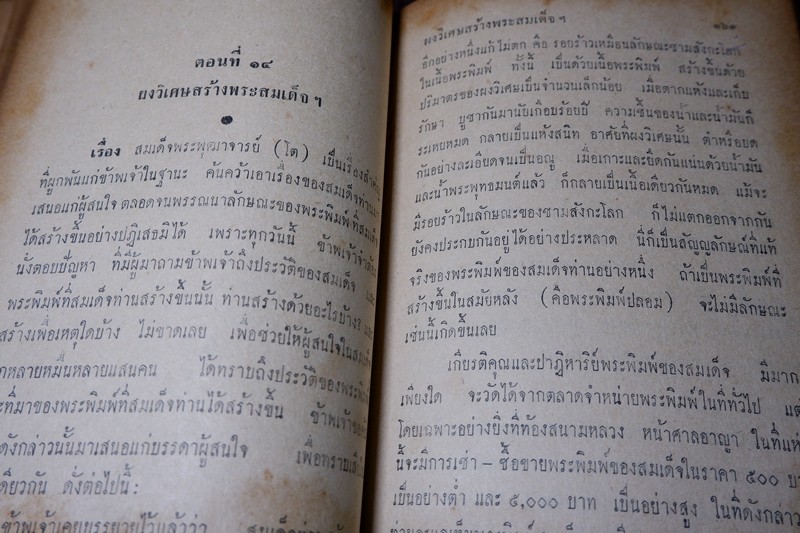 ตอนที่ ๑๔
ผงวิเศษสร้างพระสมเด็จฯ
เรื่อง สมเด็จพระพุฒาจารย์ (โต) เป็นเรื่องสำคัญ
ที่ผูกพันแก่ข้าพเจ้าในฐานะ ค้นคว้าเอาเรื่องของสมเด็จท่านมา
เสนอแก่ผู้สนใจ ตลอดจนพรรณนาลักษณะของพระพิมพ์ที่สมเด็จ
ได้สร้างขึ้นอย่างปฏิเสธมิได้ เพราะทุกวันนี้ ข้าพเจ้าจำต้อง
นั่งตอบปัญหา ที่มีผู้มาถามข้าพเจ้าถึงประวัติของสมเด็จ
พระพิมพ์ที่สมเด็จท่านสร้างขึ้นนั้น ท่านสร้างด้วยอะไรบ้าง?
สร้างเพื่อเหตุใดบ้าง ไม่ขาดเลย เพื่อช่วยให้ผู้สนใจในสมเด็จ
กหลายหมื่นหลายแสนคน ได้ทราบถึงประวัติของพระพิมพ์
ะที่มาของพระพิมพ์ที่สมเด็จท่านได้สร้างขึ้น ข้าพเจ้าขอ
ดังกล่าวนั้นมาเสนอแก่บรรดาผู้สนใจ เพื่อทราบ
ดียวกัน ดังต่อไปนี้:
ข้าพเจ้าเคยบรรยายไว้แล้วว่า
ผงวิเศษสร้างพระสมเด็จฯ ๑๖๑
อีกอย่างหนึ่งแก้ไม่ตก คือ รอยร้าวเหมือนลักษณะชามสังกะโลก
ในเนื้อพระพิมพ์ ทั้งนี้ เป็นด้วยเนื้อพระพิมพ์ สร้างขึ้นด้วย
ปริมาตรของผงวิเศษเป็นจำนวนเล็กน้อย เมื่อตากแห้งและเก็บ
รักษา บูชากันมานับเกือบร้อยปี ความชื้นของน้ำและน้ำมันก็
ระเหยหมด กลายเป็นแห้งสนิท อาศัยที่ผงวิเศษนั้น ตำหรือบด
กันอย่างละเอียดจนเป็นอณู เมื่อเกาะและยึดกันแน่นด้วยน้ำมัน
และน้ำพระพุทธมนต์แล้ว ก็กลายเป็นเนื้อเดียวกันหมด แม้จะ
มีรอยร้าวในลักษณะของชามสังกะโลก ก็ไม่แตกออกจากกัน
ยังคงประกบกันอยู่ได้อย่างประหลาด นี่ก็เป็นสัญญลักษณ์ที่แท้
จริงของพระพิมพ์ของสมเด็จท่านอย่างหนึ่ง ถ้าเป็นพระพิมพ์ที่
สร้างขึ้นในสมัยหลัง (คือพระพิมพ์ปลอม) จะไม่มีลักษณะ
เช่นนี้เกิดขึ้นเลย
เกียรติคุณและปาฏิหาริย์พระพิมพ์ของสมเด็จ มีมาก
เพียงใด จะวัดได้จากตลาดจำหน่ายพระพิมพ์ในที่ทั่วไป แต่
โดยเฉพาะอย่างยิ่งที่ท้องสนามหลวง หน้าศาลอาญา ในที่แห่ง
นี้จะมีการเช่า – ซื้อขายพระพิมพ์ของสมเด็จในราคา ๕๐๐ บา
เป็นอย่างต่ำ และ ๕,๐๐๐ บาท เป็นอย่างสูง ในที่ดังกล่าว